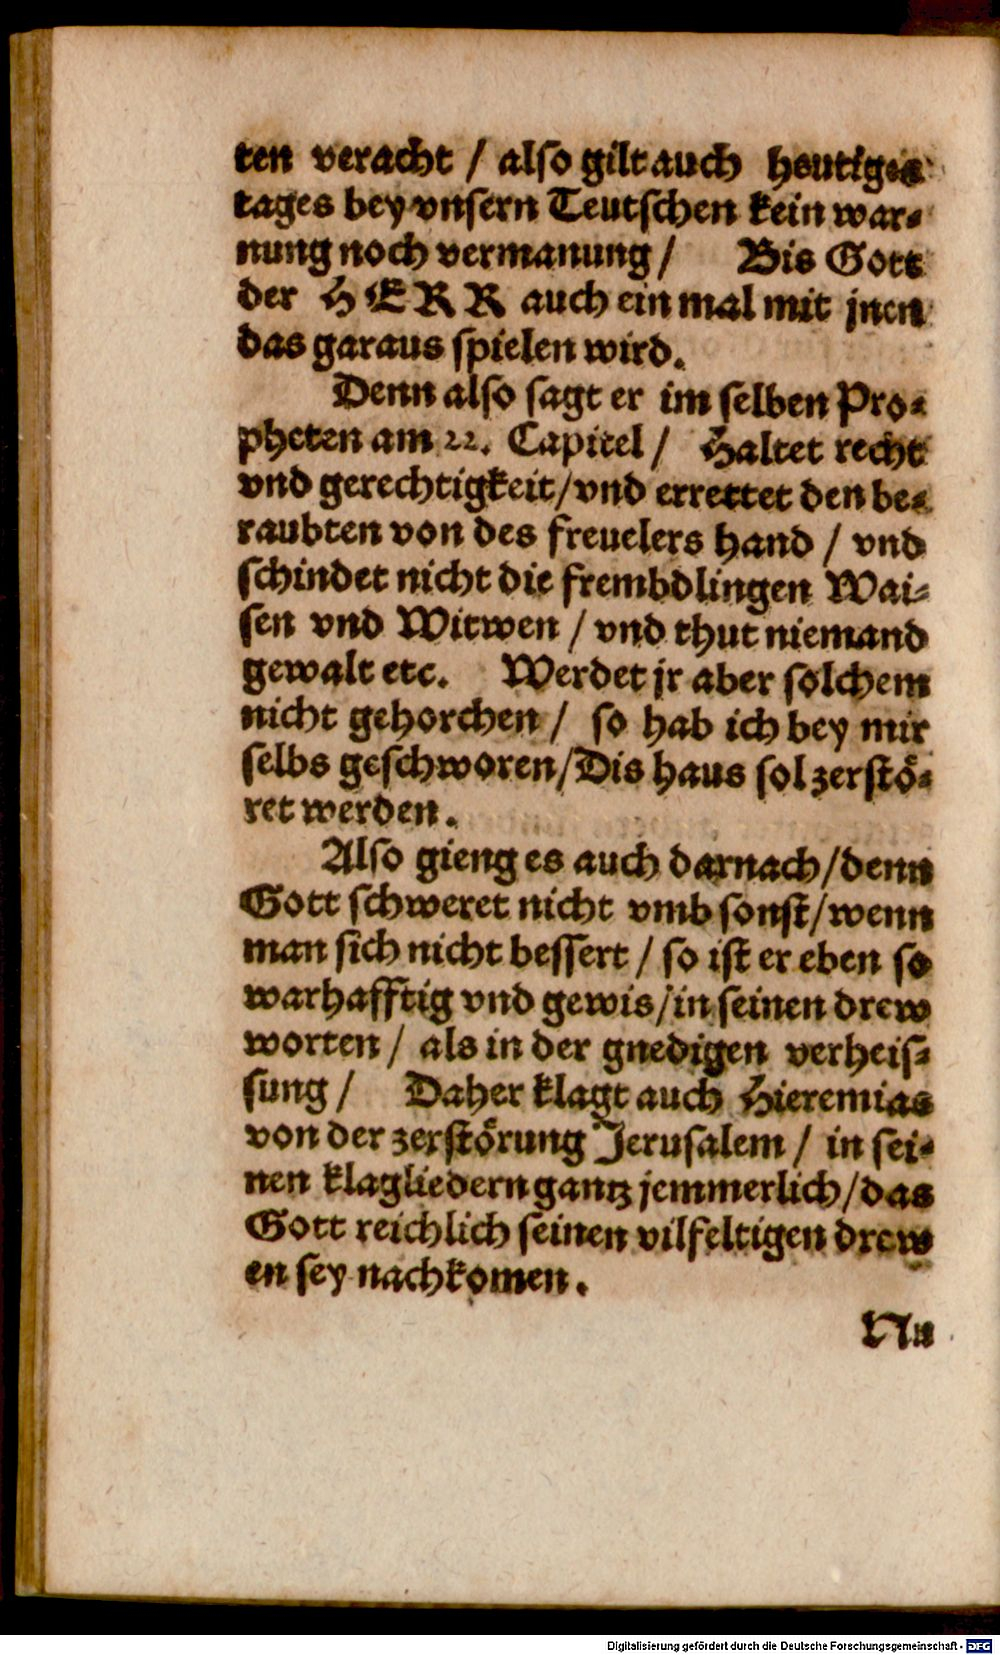 ten veracht / also gilt auch heutiges
tages bey vnsern Teutschen kein war⸗
nung noch vermanung / Bis Gott
der HERR auch ein mal mit jnen
das garaus spielen wird.
Denn also sagt er im selben Pro⸗
pheten am 22. Capitel / Haltet recht
vnd gerechtigkeit / vnd errettet den be⸗
raubten von des freuelers hand / vnd
schindet nicht die frembdlingen Wai⸗
sen vnd Witwen / vnd thut niemand
gewalt etc. Werdet jr aber solchem
nicht gehorchen / so hab ich bey mir
selbs geschworen / Dis haus sol zerstö⸗
ret werden.
Also gieng es auch darnach / denn
Gott schweret nicht vmb sonst / wenn
man sich nicht bessert / so ist er eben so
warhafftig vnd gewis / in seinen drew
worten / als in der gnedigen verheis⸗
sung / Daher klagt auch Hieremias
von der zerstörung Jerusalem / in sei⸗
nen klagliedern gantz jemmerlich / das
Gott reichlich seinen vilfeltigen drew
en sey nachkomen.
Nu
Digitalisierung gefördert durch die Deutsche Forschungsgemeinschaft - DFG